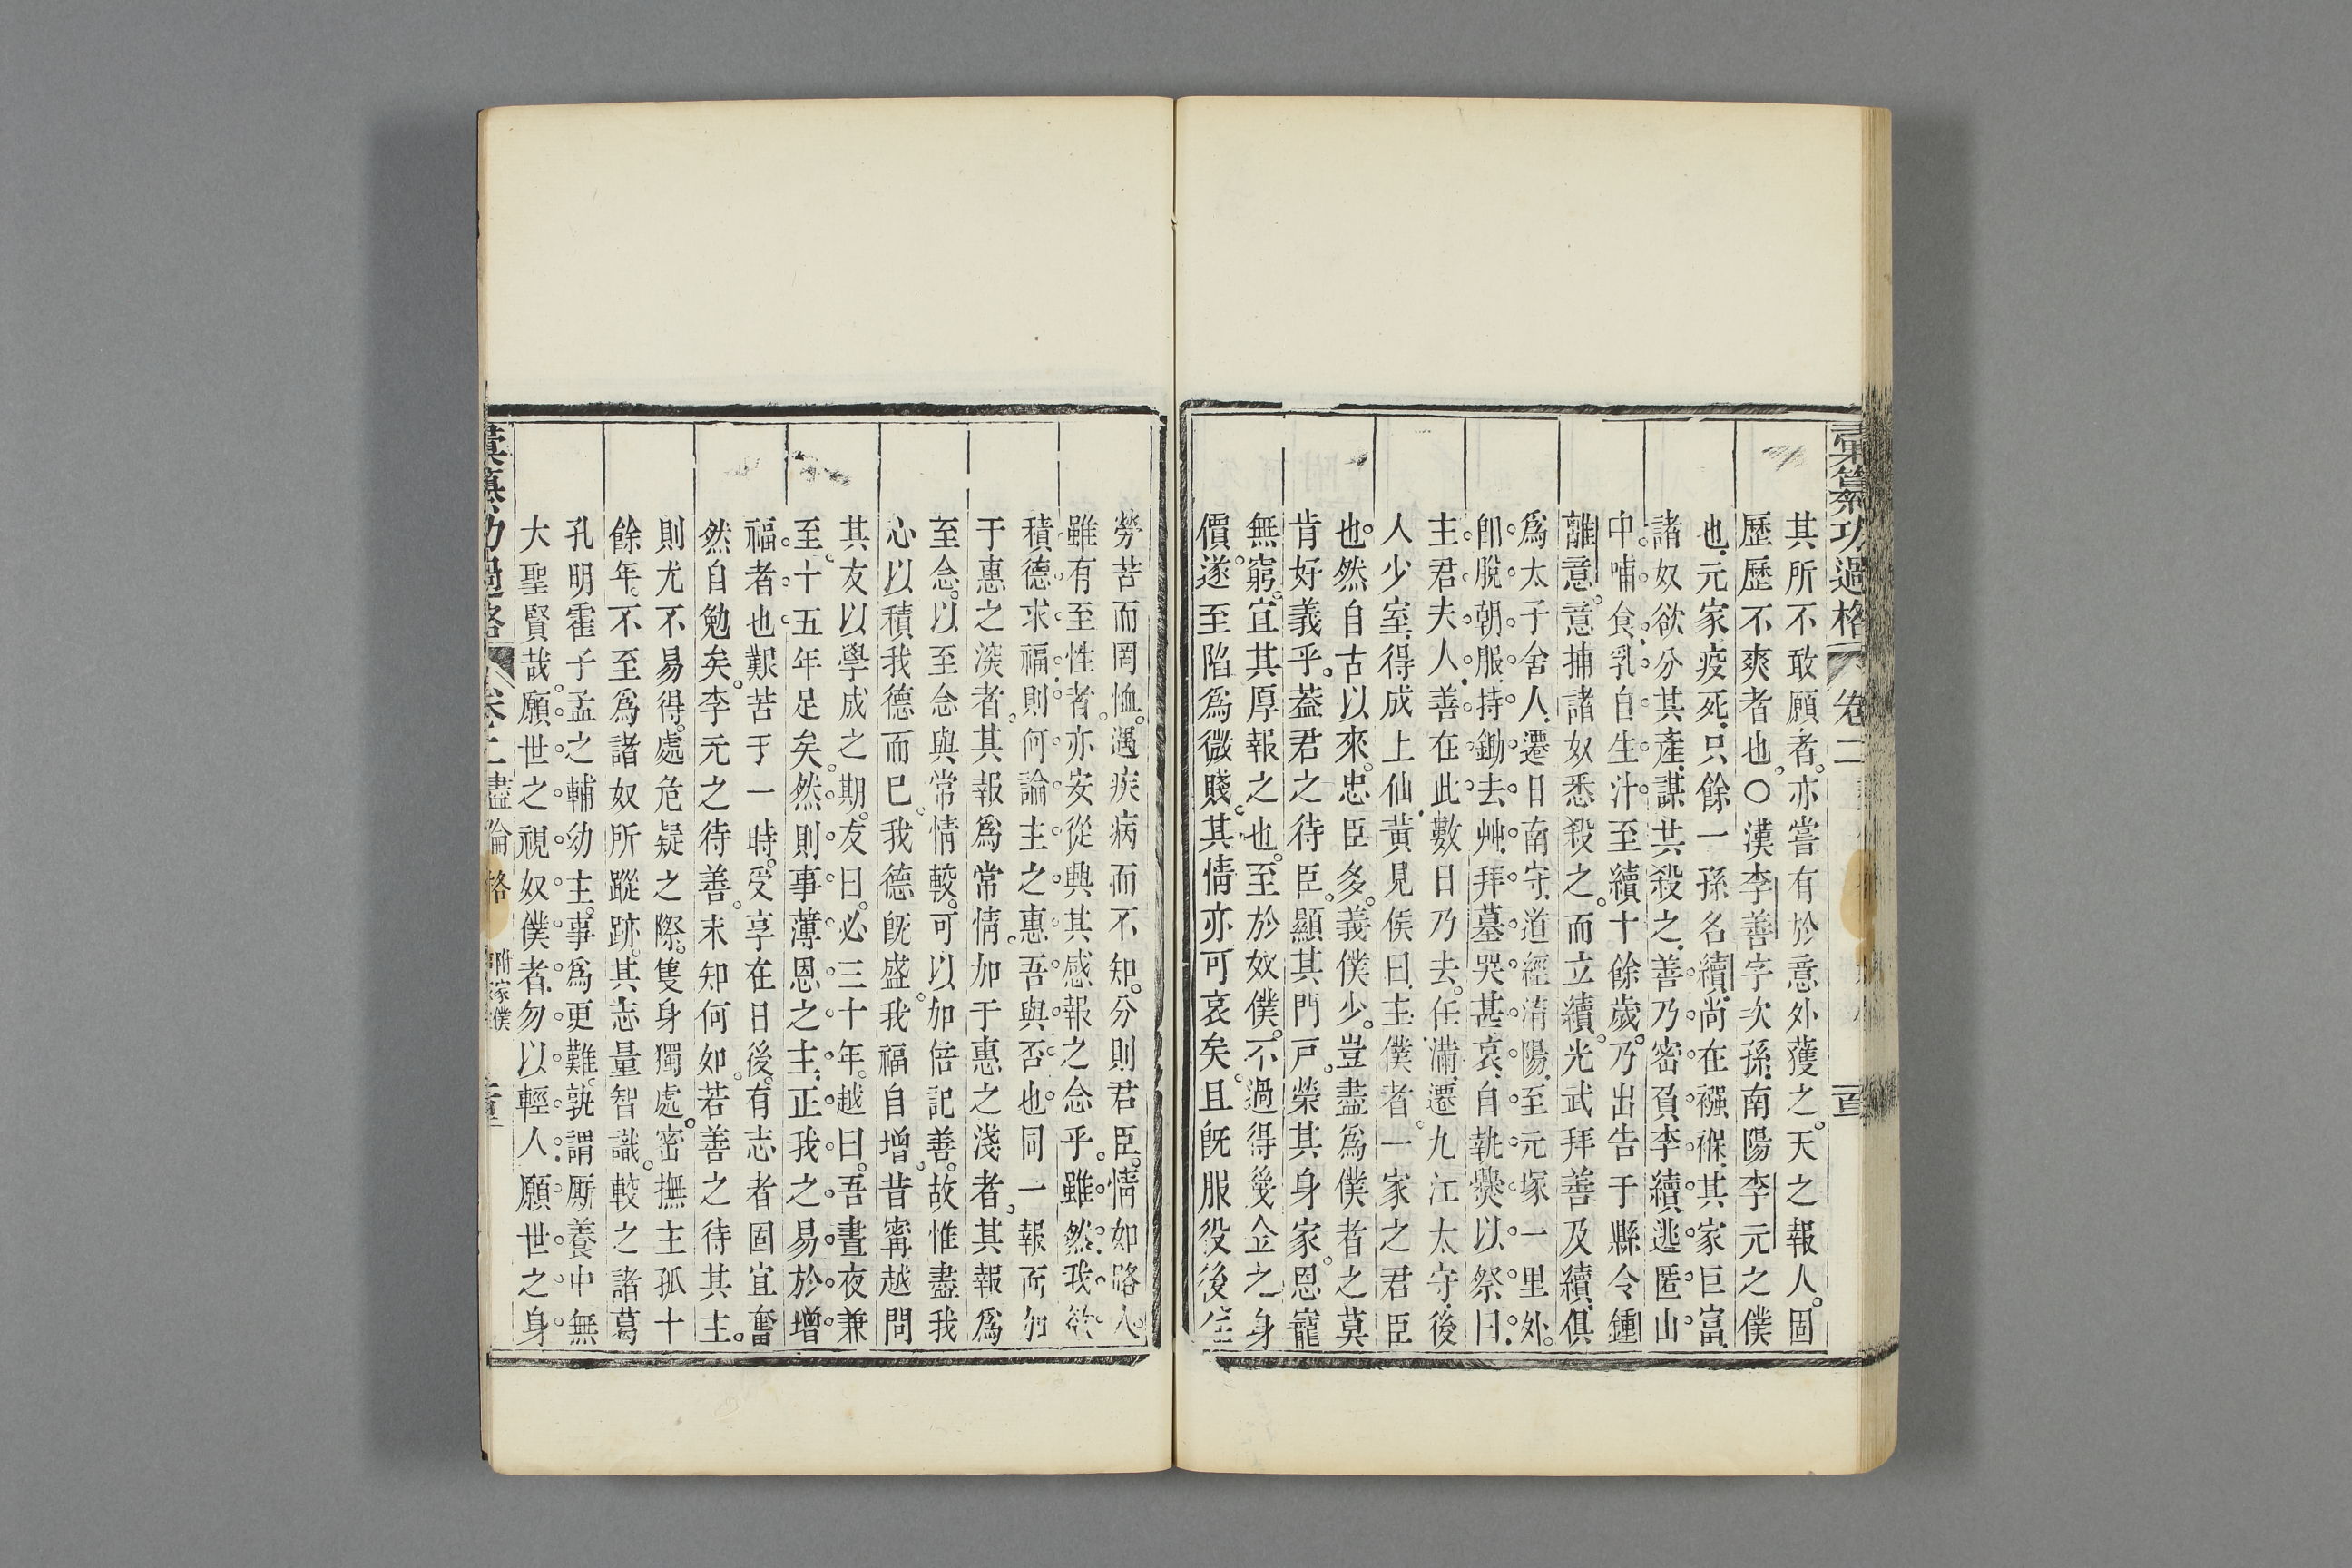 彙纂功過格 卷二
其所不敢願者。亦嘗有於意外獲之。天之報人。固
歷歷不爽者也。○漢李善字次孫。南陽李元之僕
也。元家疫死。只餘一孫名續。尚在襁褓。其家巨富。
諸奴欲分其產。謀共殺之。善乃密負李續。逃匿山
中。哺食。乳自生汁。至續十餘歲。乃出告于縣令鍾
離意。意捕諸奴悉殺之。而立續。光武拜善及續。俱
爲太子舍人。遷日南守。道經淸陽。至元塚一里外。
卽脫朝服。持鋤去艸。拜墓哭甚哀。自執爨以祭曰。
主君夫人。善在此。數日乃去。任滿。遷九江太守。後
人少室。得成上仙。黃見侯曰。主僕者。一家之君臣
也。然自古以來。忠臣多。義僕少。豈盡爲僕者之莫
肯好義乎。葢君之待臣。顯其門戸。榮其身家。恩寵
無窮。宜其厚報之也。至於奴僕。不過得幾金之身
價。遂至陷爲微賤。其情亦可哀矣。且旣服役後。生
勞苦而罔恤。遇疾病而不知。分則君臣。情如路人。
雖有至性者。亦安從興其感報之念乎。雖然。我欲
積德求福。則何論主之惠吾與否也。同一報而加
于惠之深者。其報爲常情。加于惠之淺者。其報爲
至念。以至念與常情較。可以加倍記善。故惟盡我
心以積我德而已。我德旣盛。我福自增。昔寗越問
其友以學成之期。友曰。必三十年。越曰。吾晝夜兼
至。十五年足矣。然則事薄恩之主。正我之易於增
福者也。艱苦于一時。受享在日後。有志者固宜奮
然自勉矣。李元之待善。未知何如。若善之待其主。
則尤不易得。處危疑之際。隻身獨處。密撫主孤十
餘年。不至爲諸奴所蹤跡。其志量智識。較之諸葛
孔明霍子孟之輔幼主。事爲更難。孰謂厮養中無
大聖賢哉。願世之視奴僕者。勿以輕人。願世之身
彙纂功過格 卷二 盡倫格 附家僕